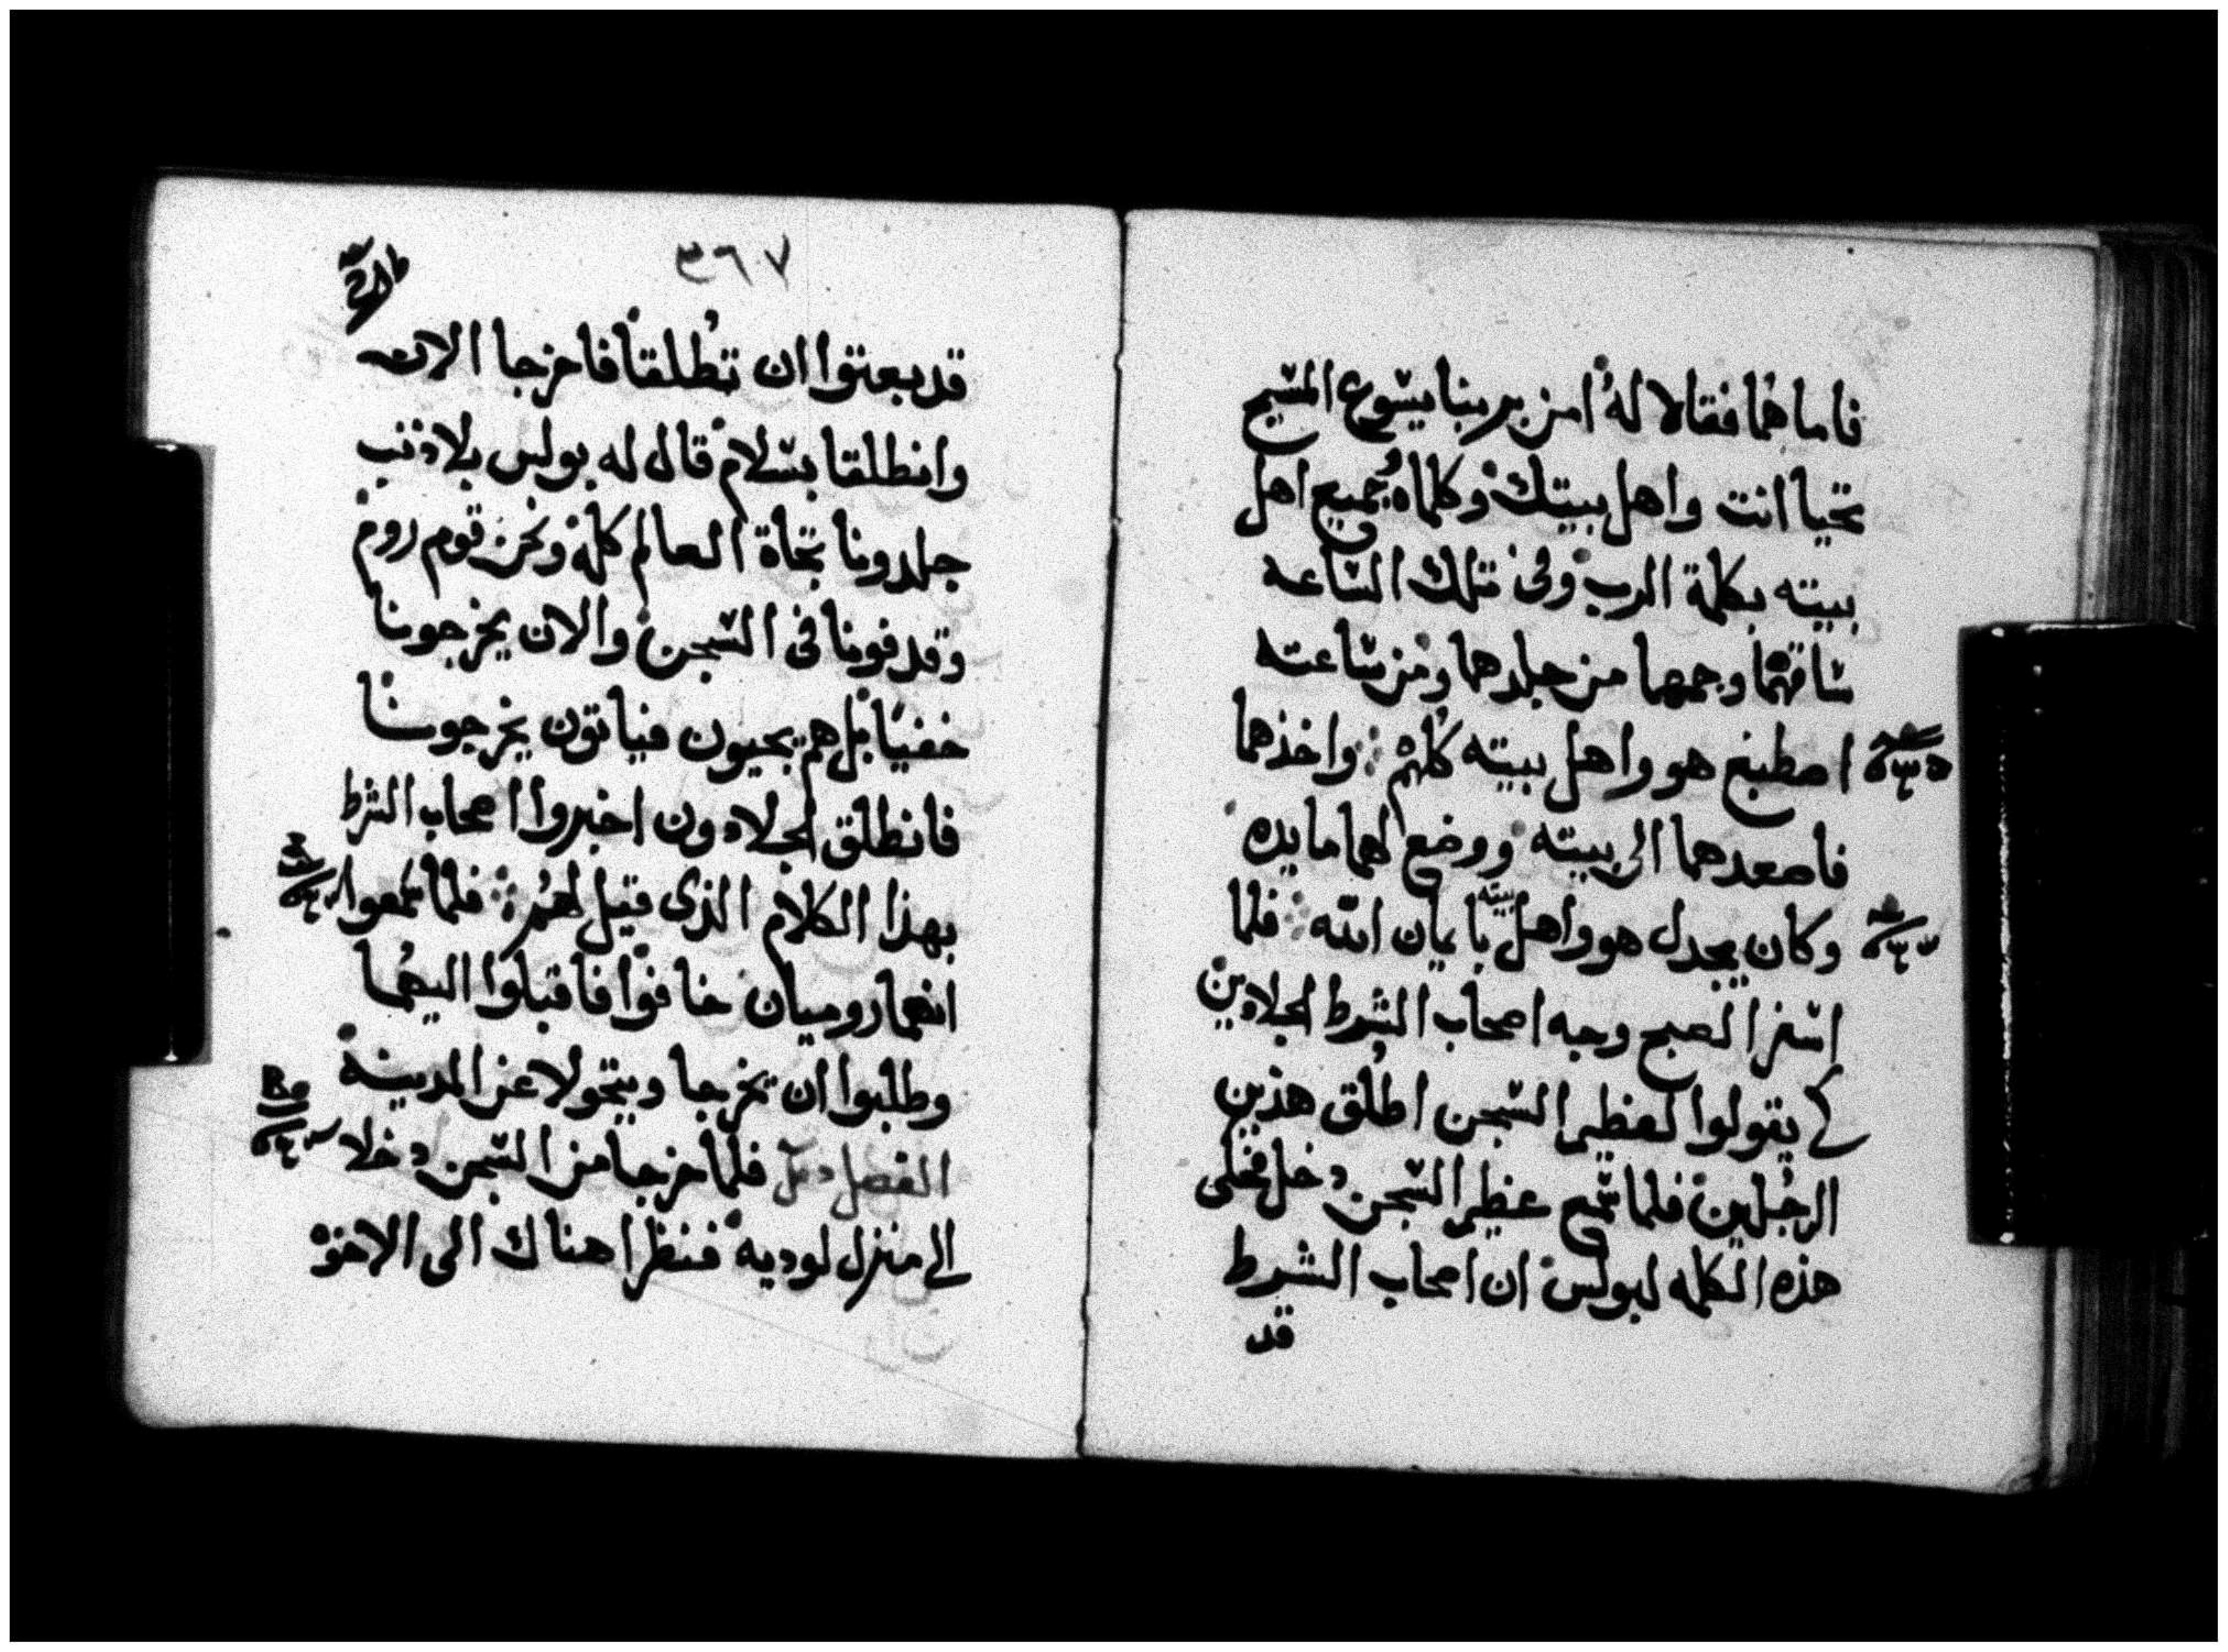 فاما هما فقالا له امن بربنا يسوع المسيح
تحيا انت واهل بيتك وكلماه وجميع اهل
بيته بكلمة الرب وفى تلك الساعه
ساقهما وحمهما من جلدهما ومن ساعته
اصطبغ هو واهل بيته كلهم واخذهما
فاصعدهما الى بيته ووضع لهما مايده
وكان يجدل هو واهل بيته بايمان الله فلما
اسفر الصبح وجه اصحاب الشرط الجلادين
كى يقولوا لعظيم السجن اطلق هذين
الرجلين فلما سمع عظيم السجن دخل فحكى
هذه الكلمه لبولس ان اصحاب الشرط
قد
٣٦٧
قد بعتوا ان تطلقا فاخرجا الان
وانطلقا بسلام قال له بولس بلا ذنب
جلدونا تجاة العالم كله ونحن قوم روم
وقدفونا فى السجن والان يخرجونا
خفيا بل هم يجيون فياتون يخرجونا
فانطلق الجلادون اخبروا اصحاب الشرط
بهذا الكلام الذى قيل لهم فلما سمعوا
انهما روميان خافوا فاقبلوا اليهما
وطلبوا ان يخرجا ويتحولا عن المدينة
الفصل فلما خرجا من السجن دخلا
الى منزل لوديه فنظرا هناك الى الاخوة